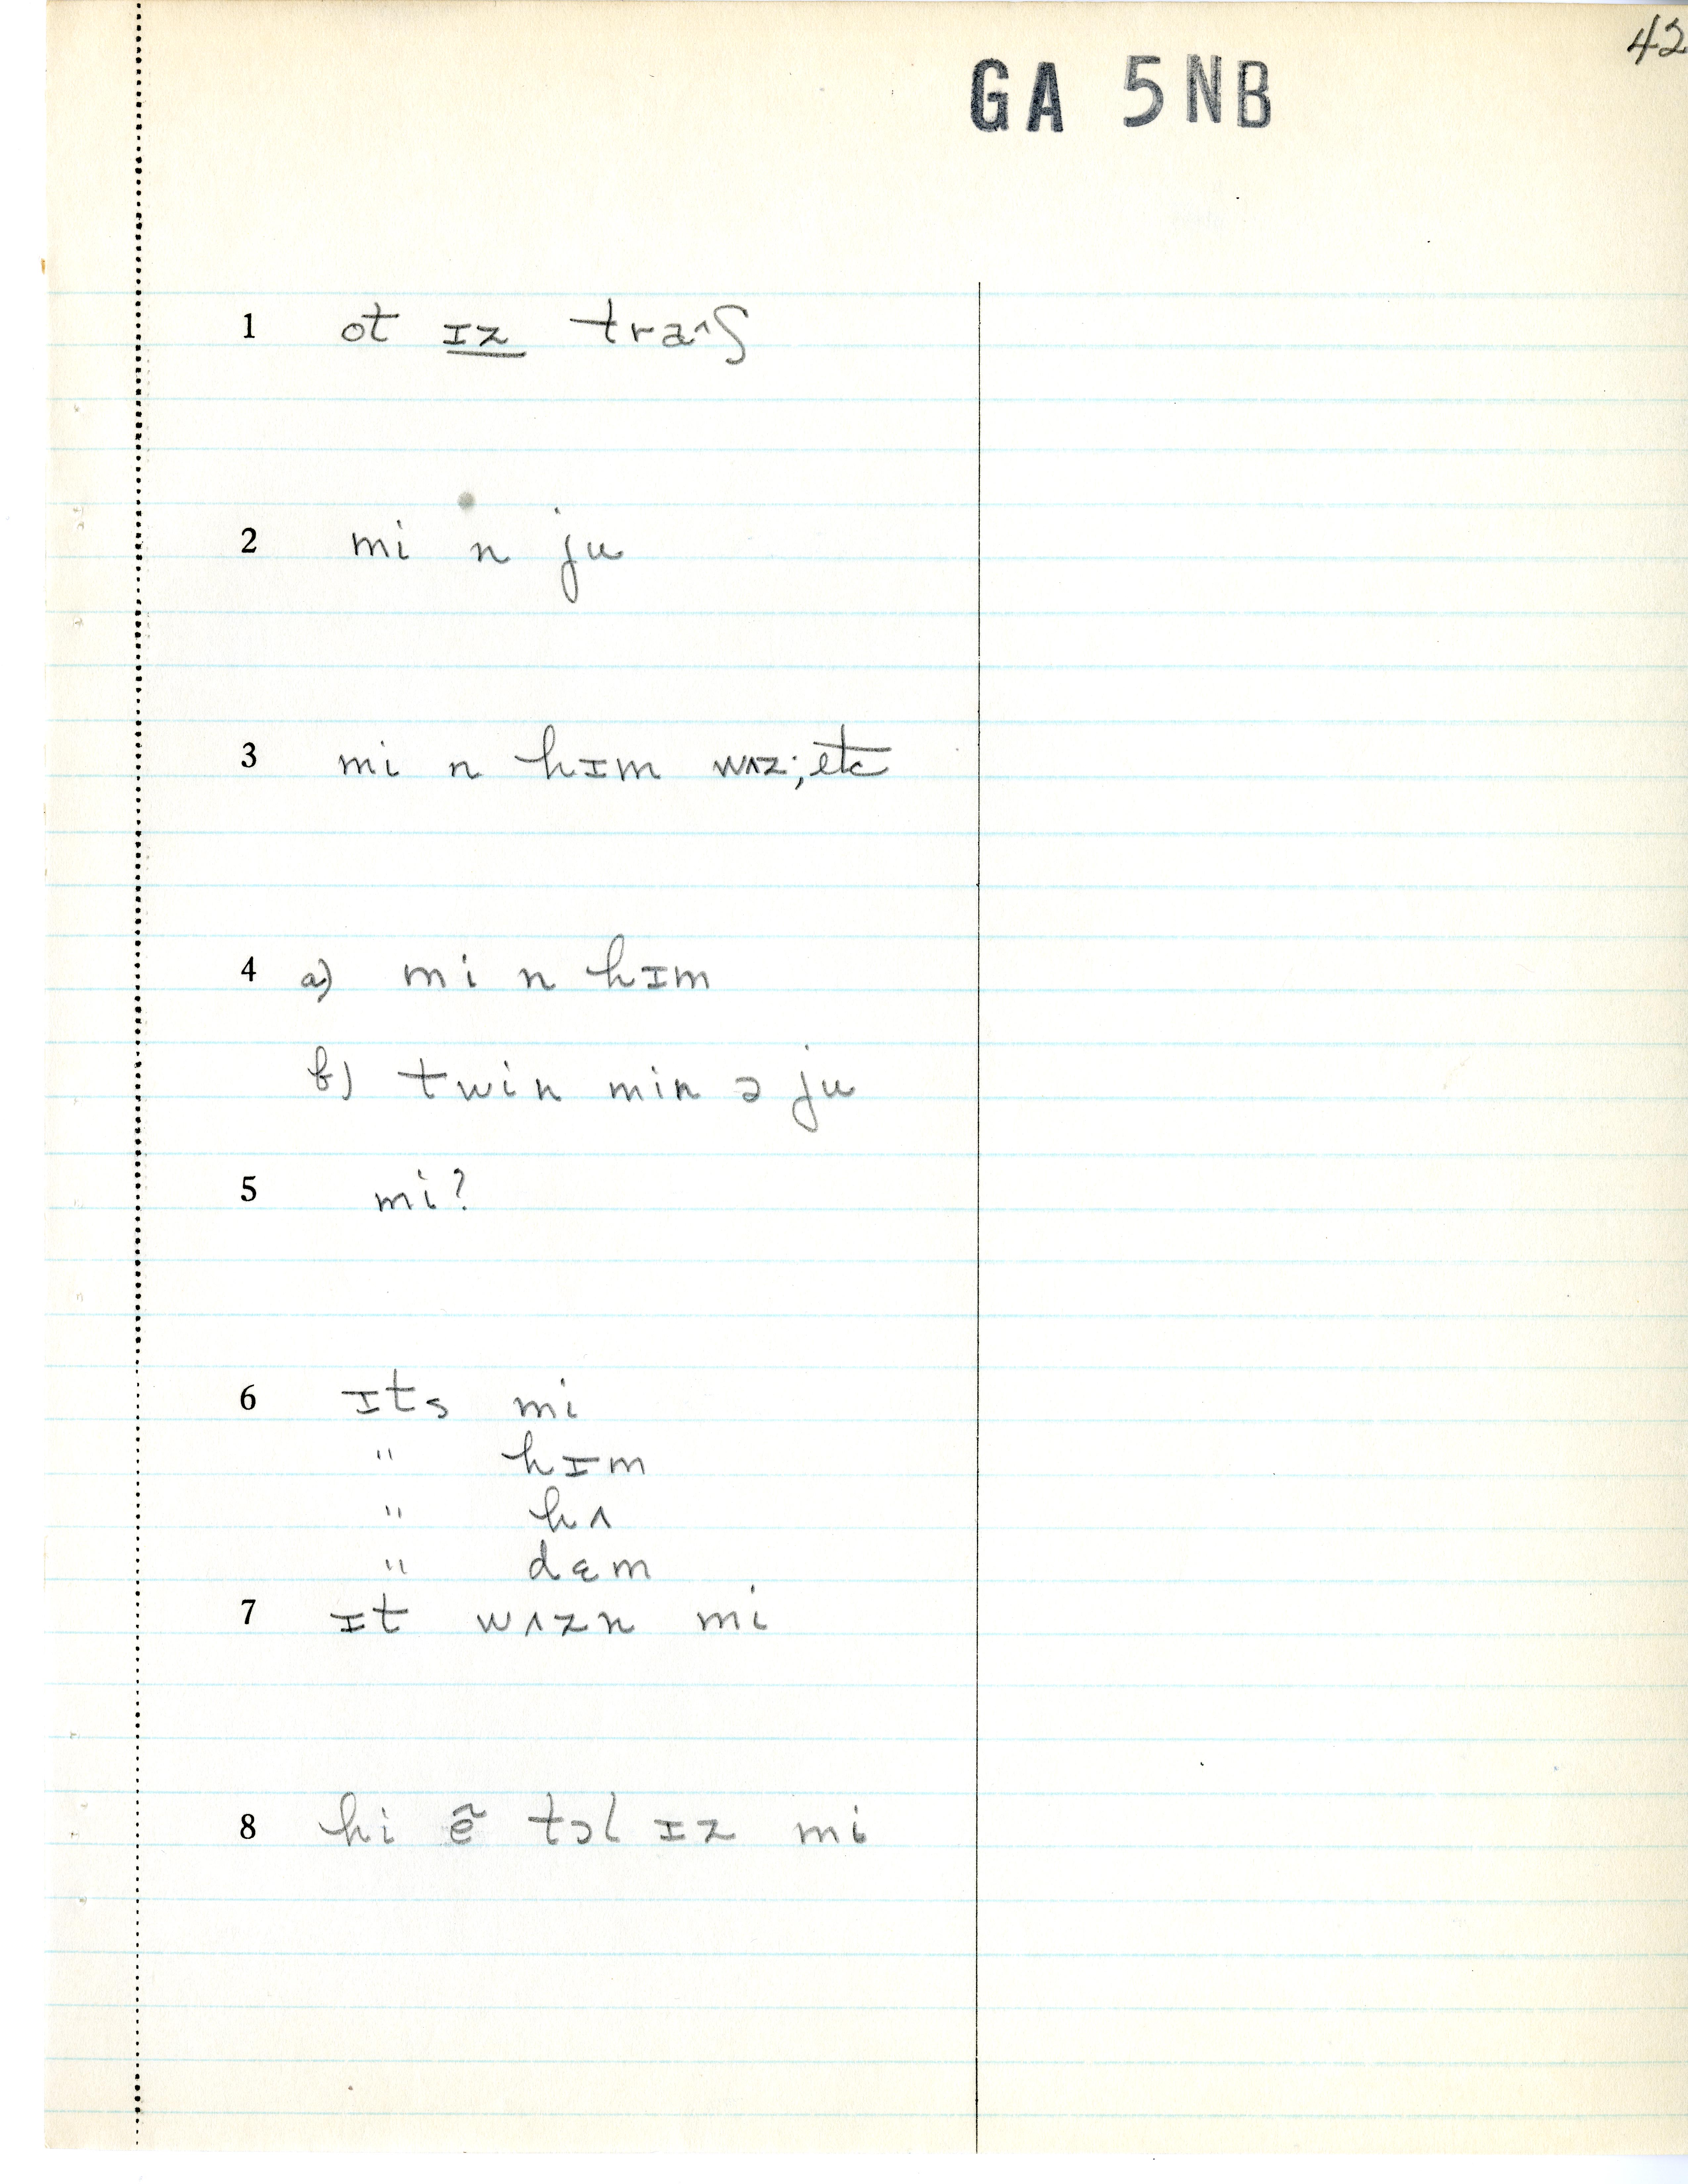 42
GA 5NB
1 ot ɪz traʌʃ
2 mi n ju
3 mi n hɪm wʌz; etc
4 a) mi n hɪm
b) twin min ə ju
5 mi?
6 ɪts mi
" hɪm
" hʌ
" dɛm
7 ɪt wʌzn mi
8 hi ẽ tɔl ɪz mi